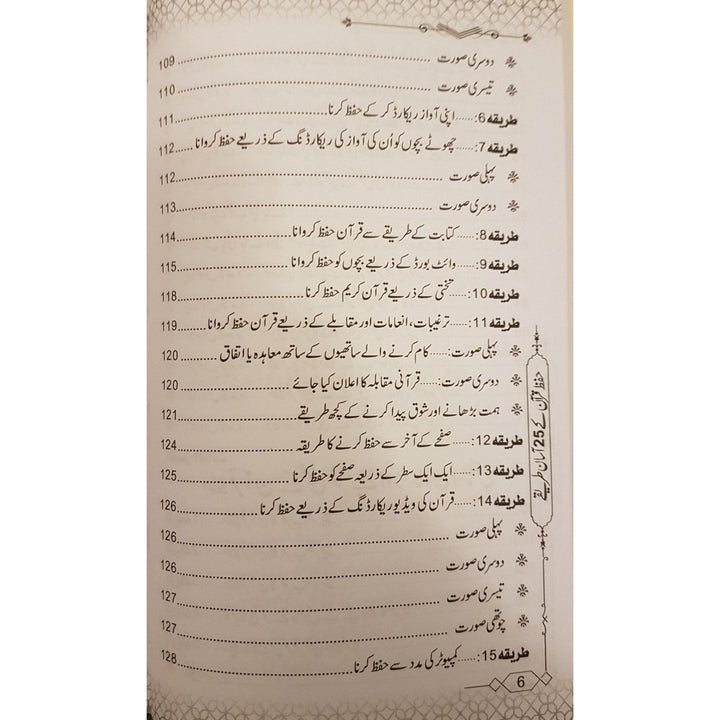 ❋ دوسری صورت ........ 109
❋ تیسری صورت ........ 110
طریقہ 6:...... اپنی آواز ریکارڈ کر کے حفظ کرنا ........ 111
طریقہ 7:...... چھوٹے بچوں کو اُن کی آواز کی ریکارڈنگ کے ذریعے حفظ کروانا ........ 112
❋ پہلی صورت ........ 112
❋ دوسری صورت ........ 113
طریقہ 8:...... کتابت کے طریقے سے قرآن حفظ کروانا ........ 114
طریقہ 9:...... وائٹ بورڈ کے ذریعے بچوں کو حفظ کروانا ........ 115
طریقہ 10:...... تختی کے ذریعے قرآن کریم حفظ کرنا ........ 118
طریقہ 11:...... ترغیبات، انعامات اور مقابلے کے ذریعے قرآن حفظ کروانا ........ 119
❋ پہلی صورت:...... کام کرنے والے ساتھیوں کے ساتھ معاہدہ یا اتفاق ........ 120
❋ دوسری صورت:...... قرآنی مقابلہ کا اعلان کیا جائے ........ 120
❋ ہمت بڑھانے اور شوق پیدا کرنے کے کچھ طریقے ........ 121
طریقہ 12:...... صفحے کے آخر سے حفظ کرنے کا طریقہ ........ 124
طریقہ 13:...... ایک ایک سطر کے ذریعہ صفحے کو حفظ کرنا ........ 125
طریقہ 14:...... قرآن کی ویڈیو ریکارڈنگ کے ذریعے حفظ کرنا ........ 126
❋ پہلی صورت ........ 126
❋ دوسری صورت ........ 126
❋ تیسری صورت ........ 127
❋ چوتھی صورت ........ 127
طریقہ 15:...... کمپیوٹر کی مدد سے حفظ کرنا ........ 128
حفظ قرآن کے 25 آسان طریقے
6